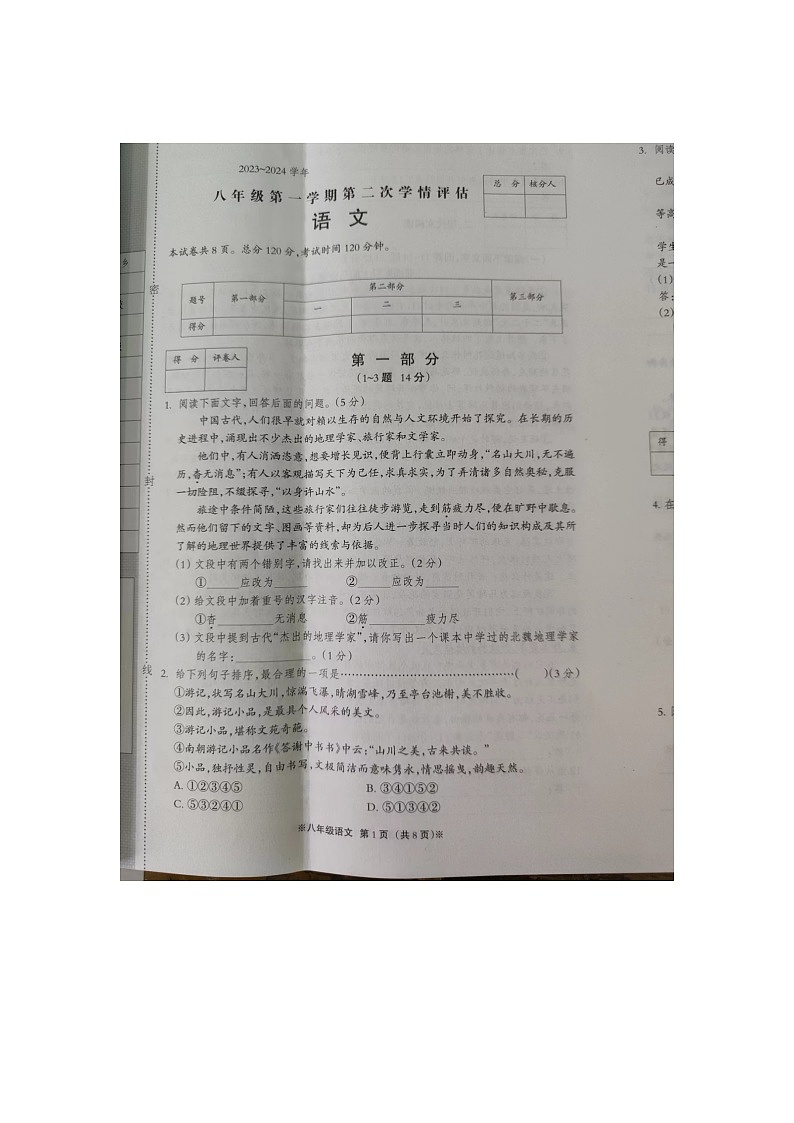 2023~2024 学年
八年级第一学期第二次学情评估
语 文
总 分 核分人
本试卷共8页。总分120分,考试时间120分钟。
题号 第一部分 第二部分 第三部分
一 二 三
得分
得 分 评卷人
第 一 部 分
(1~3题 14分)
1. 阅读下面文字,回答后面的问题。(5分)
中国古代,人们很早就对赖以生存的自然与人文环境开始了探究。在长期的历
史进程中,涌现出不少杰出的地理学家、旅行家和文学家。
他们中,有人消洒恣意,想要增长见识,便背上行囊立即动身,“名山大川,无不遍
历,杳无消息”;有人以客观描写天下为己任,求真求实,为了弄清诸多自然奥秘,克服
一切险阻,不缀探寻,“以身许山水”。
旅途中条件简陋,这些旅行家们往往徒步游览,走到筋疲力尽,便在旷野中歇息。
然而他们留下的文字、图画等资料,却为后人进一步探寻当时人们的知识构成及其所
了解的地理世界提供了丰富的线索与依据。
(1) 文段中有两个错别字,请找出来并加以改正。(2分)
①______应改为______ ②______应改为______
(2) 给文段中加着重号的汉字注音。(2分)
①杳________无消息 ②筋________疲力尽
(3) 文段中提到古代“杰出的地理学家”,请你写出一个课本中学过的北魏地理学家
的名字:____________。(1分)
2. 给下列句子排序,最合理的一项是……………………………………( )(3分)
①游记,状写名山大川,惊湍飞瀑,晴湖雪峰,乃至亭台池榭,美不胜收。
②因此,游记小品,是最具个人风采的美文。
③游记小品,堪称文苑奇葩。
④南朝游记小品名作《答谢中书书》中云:“山川之美,古来共谈。”
⑤小品,独抒性灵,自由书写,文极简洁而意味隽永,情思摇曳,韵趣天然。
A. ①②③④⑤ B. ③④①⑤②
C. ⑤③②④① D. ⑤①③④②
※八年级语文 第1页 (共8页)※
密
封
线
3. 阅读
已成
等高
学生
是一
(1)
答:
(2)
得
4. 在
5.